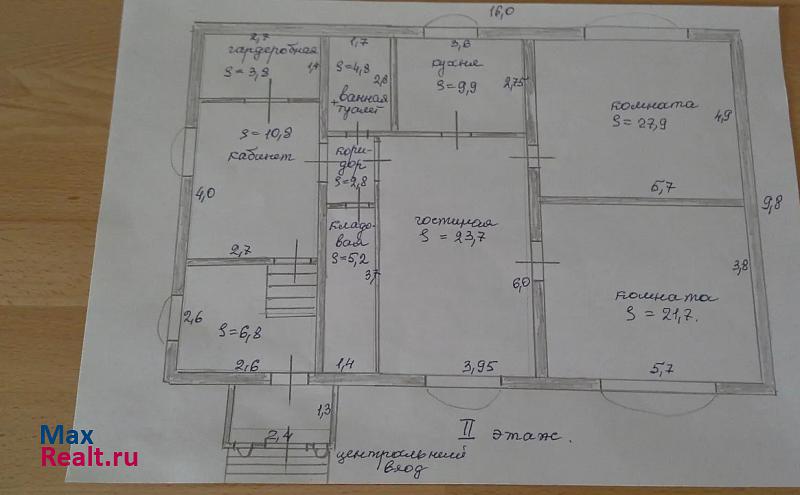 16,0
2,7
гардеробная
S=3,8
1,4
1,7
S=4,8
2,8
ванная
+туалет
3,6
кухня
S=9,9
2,75
комната
S=27,9
4,9
5,7
S=10,8
кабинет
4,0
2,7
кори-
дор
S=2,8
гостиная
S=23,7
6,0
3,95
9,8
кладо-
вая
S=5,2
3,7
1,4
комната
S=21,7.
3,8
5,7
2,6
S=6,8
2,6
1,3
2,4
центральний
вход
II этаж.
Max
Realt.ru